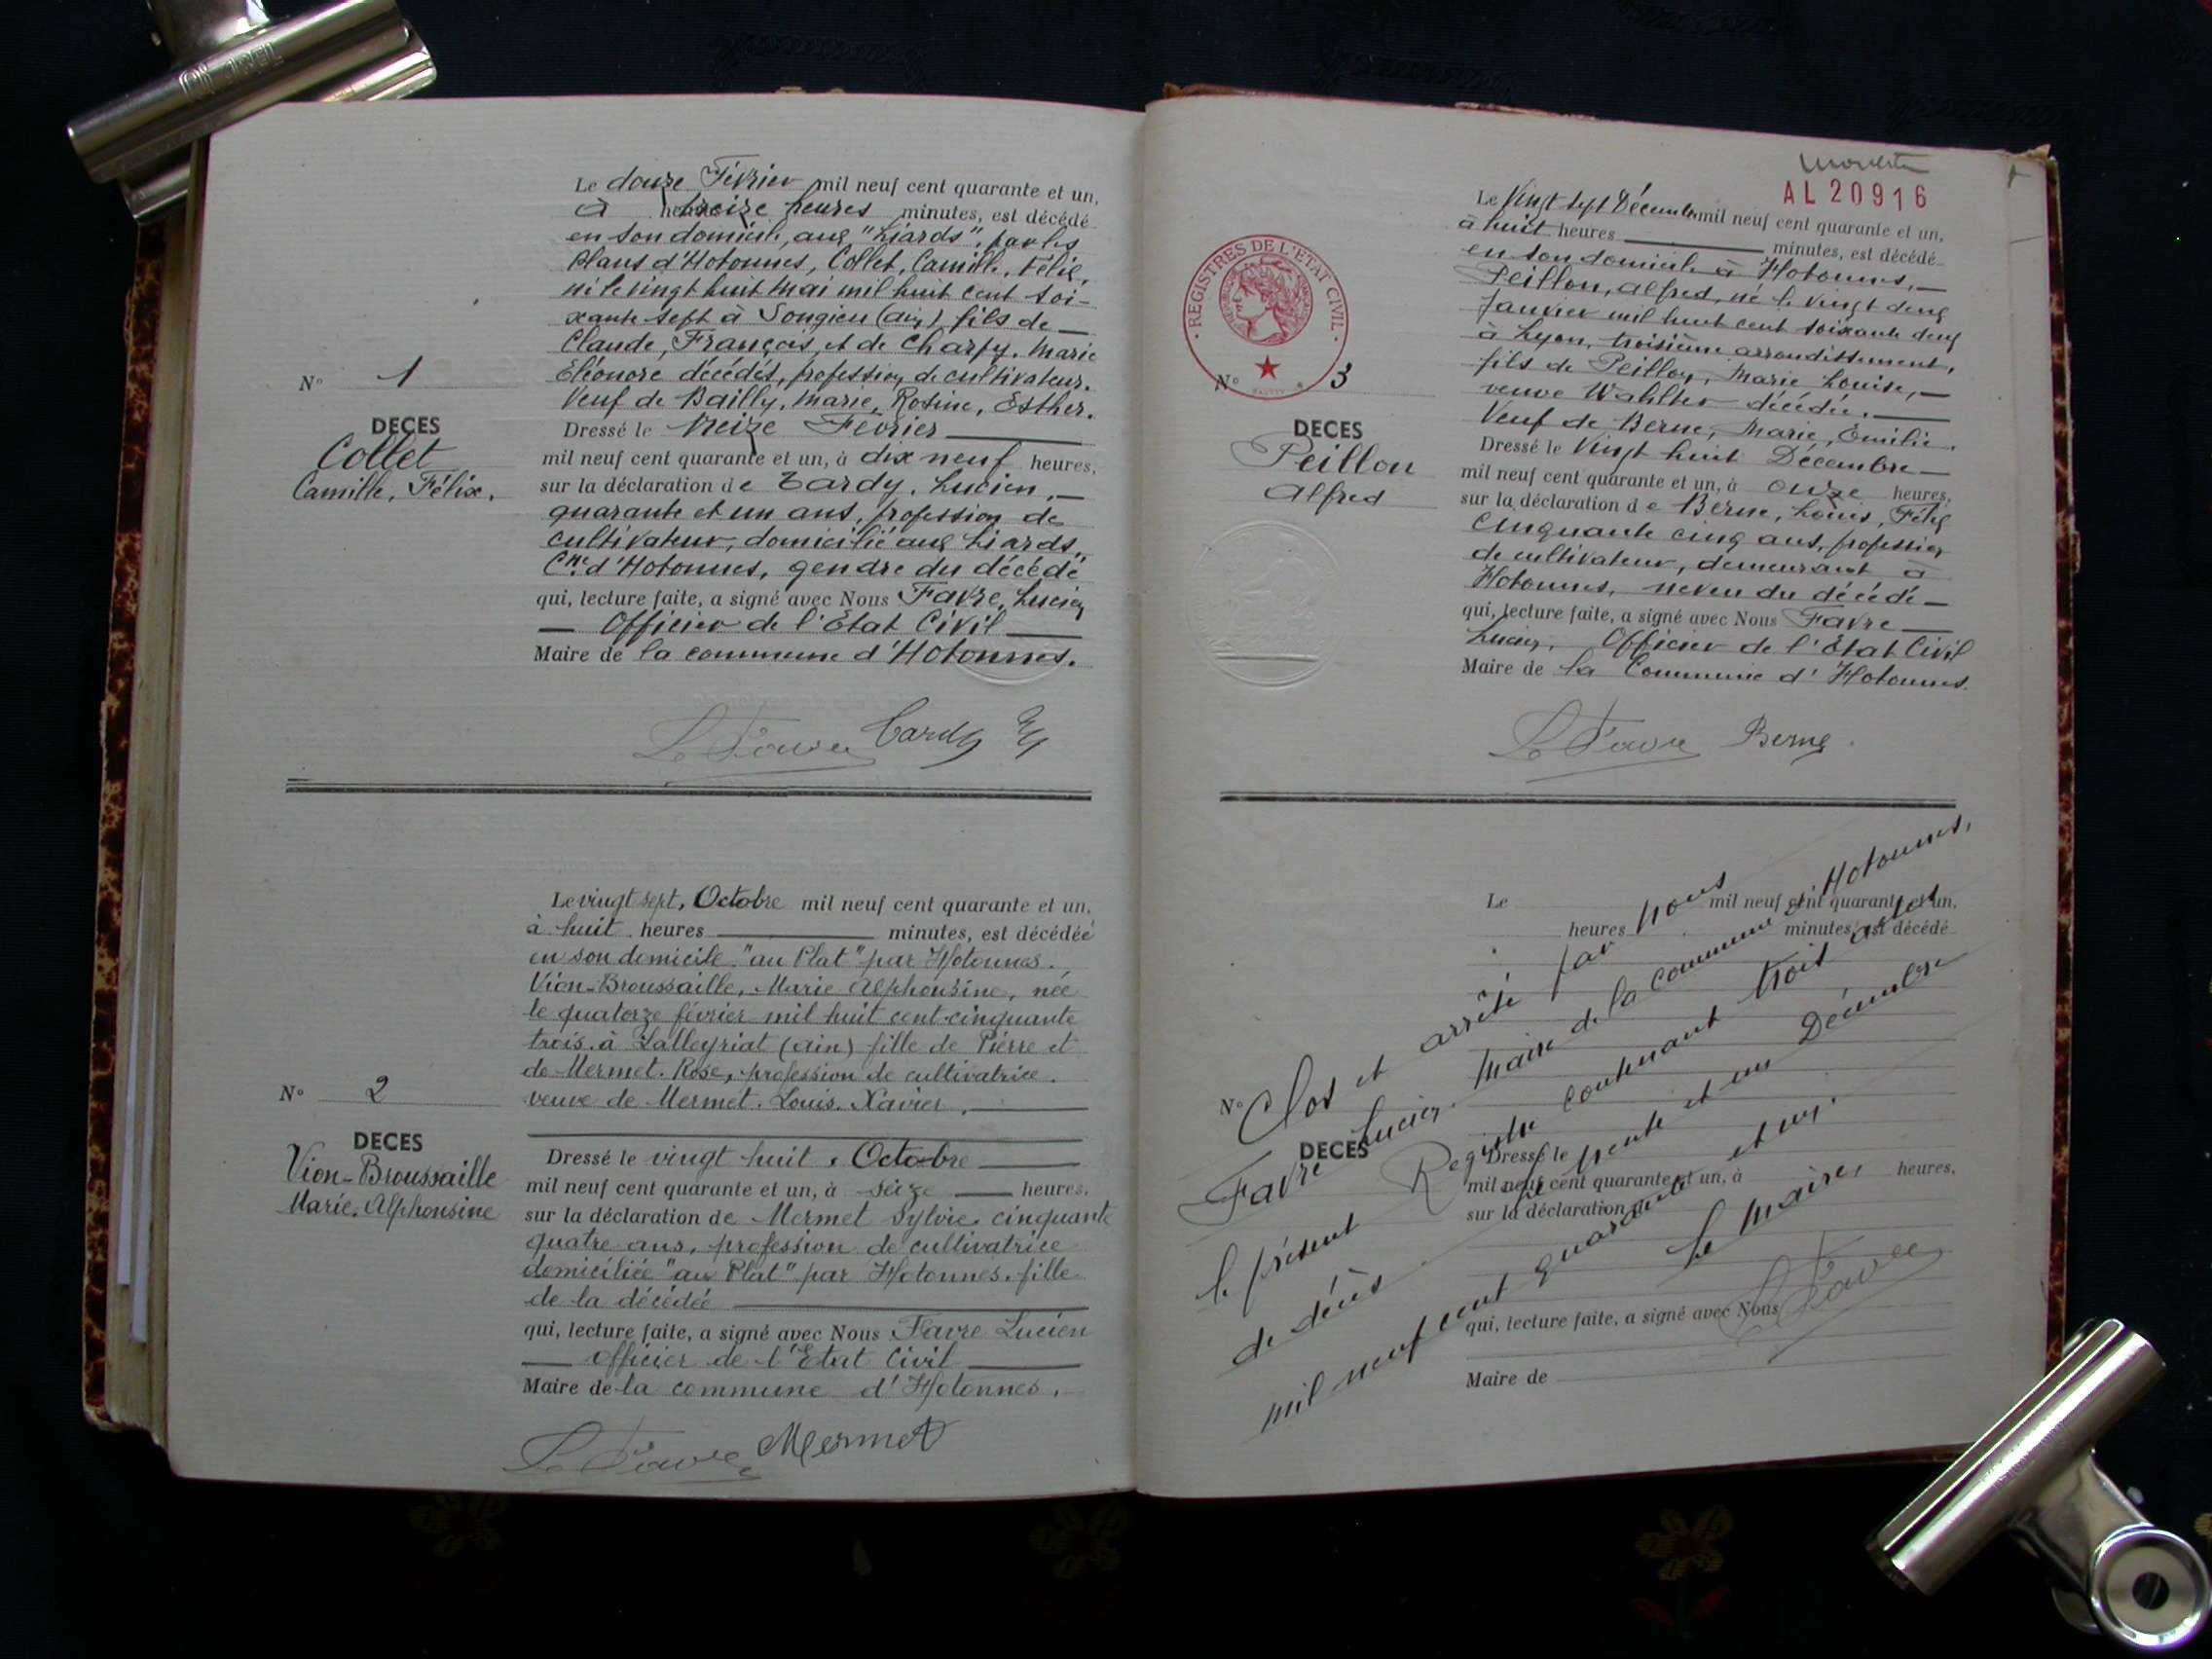 Le douze Février mil neuf cent quarante et un,
à treize heures minutes, est décédé
en son domicile, aux "Liards", par les
Plans d'Hotonnes, Collet, Camille, Félix,
né le vingt huit Mai mil huit cent soi-
xante sept à Songieu (Ain) fils de
Claude, François, et de Charfy. Marie
Eléonore décédés, profession de cultivateur.
Veuf de Bailly, Marie, Rosine, Esther.
N° 1
DECES
Collet
Camille, Félix.
Dressé le treize Février
mil neuf cent quarante et un, à dix neuf heures,
sur la déclaration de Tardy, Lucien,
quarante et un ans, profession de
cultivateur, domicilié aux Liards,
Cne d'Hotonnes, gendre du décédé
qui, lecture faite, a signé avec Nous Favre, Lucien
Officier de l'Etat Civil
Maire de la commune d'Hotonnes.
L Favre Tardy
Le vingt sept, Octobre mil neuf cent quarante et un,
à huit heures minutes, est décédée
en son domicile "au Plat" par Hotonnes.
Vion-Broussaille, Marie Alphonsine, née
le quatorze février mil huit cent cinquante
trois à Lalleyriat (Ain) fille de Pierre et
de Mermet. Rose, profession de cultivatrice.
veuve de Mermet. Louis. Xavier.
N° 2
DECES
Vion-Broussaille
Marie. Alphonsine
Dressé le vingt huit, Octobre
mil neuf cent quarante et un, à seize heures,
sur la déclaration de Mermet Sylvie. cinquante
quatre ans, profession de cultivatrice
domiciliée "au Plat" par Hotonnes. fille
de la décédée
qui, lecture faite, a signé avec Nous Favre Lucien
officier de l'Etat Civil
Maire de la commune d'Hotonnes.
L Favre Mermet
AL 20916
REGISTRES DE L'ETAT CIVIL
Le Vingt sept Décembre mil neuf cent quarante et un,
à huit heures minutes, est décédé
en son domicile à Hotonnes,
Peillon, Alfred, né le vingt deux
Janvier mil huit cent soixante deux
à Lyon, troisième arrondissement,
fils de Peillon, Marie Louise,
veuve Wahlter décédée.
Veuf de Berne, Marie, Emilie.
N° 3
DECES
Peillon
Alfred
Dressé le Vingt huit Décembre
mil neuf cent quarante et un, à onze heures,
sur la déclaration de Berne, Louis, Félix
cinquante cinq ans, profession
de cultivateur, demeurant à
Hotonnes, neveu du décédé
qui, lecture faite, a signé avec Nous Favre
Lucien, Officier de l'Etat Civil
Maire de la Commune d'Hotonnes.
L Favre Berne
Le mil neuf cent quarante et un,
heures minutes, est décédé
N°
DECES
Dressé le
mil neuf cent quarante et un, à heures,
sur la déclaration d
qui, lecture faite, a signé avec Nous
Maire de
Clos et arrêté par nous
Favre Lucien Maire de la commune d'Hotonnes,
le présent Registre contenant trois actes
de décès le trente et un Décembre
mil neuf cent quarante et un.
Le Maire,
L Favre